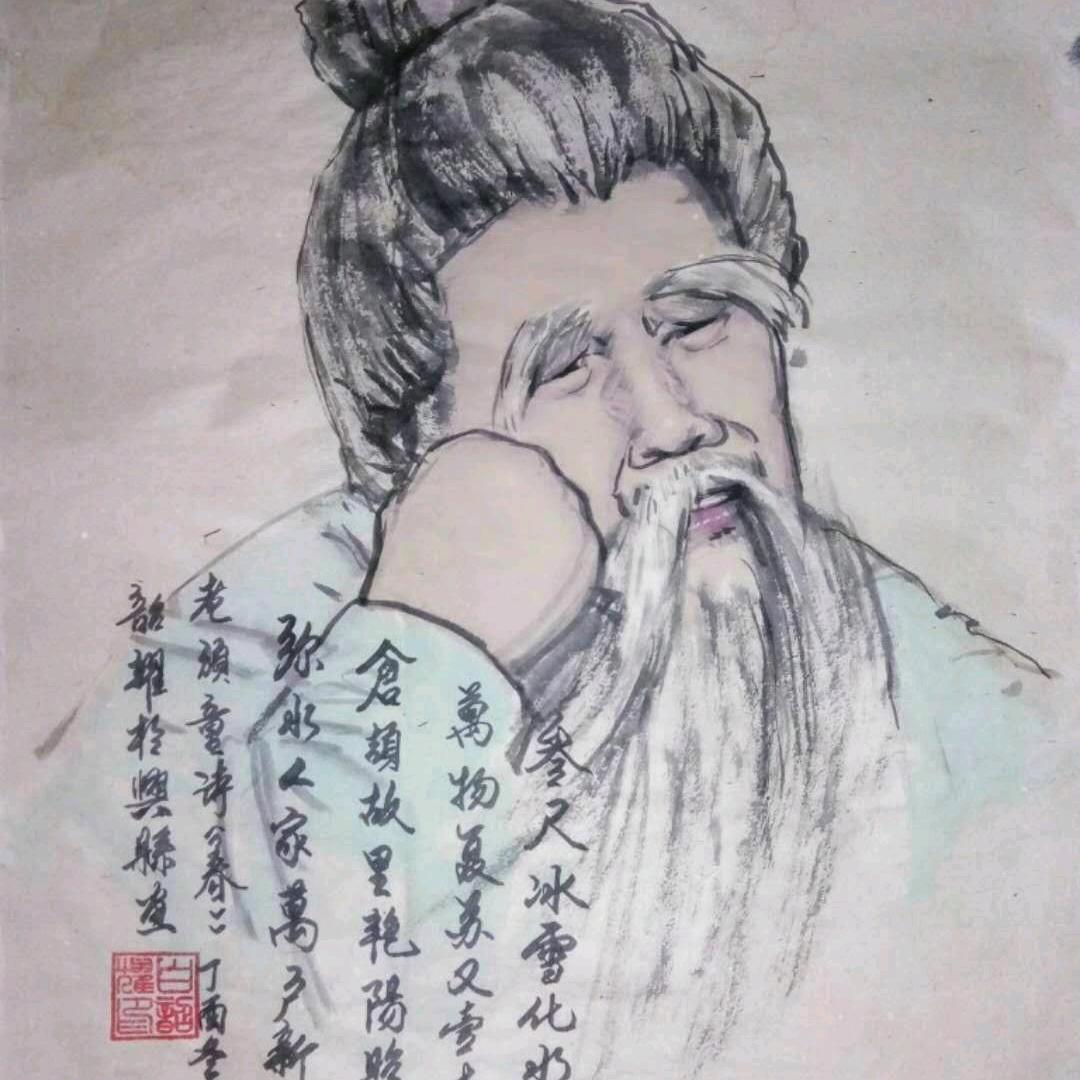 叁尺冰雪化水
萬物复苏又壹
倉頡故里艳陽
弥水人家萬户新
老頑童诗《春》丁酉冬
韶耀於興縣画
白韶耀印